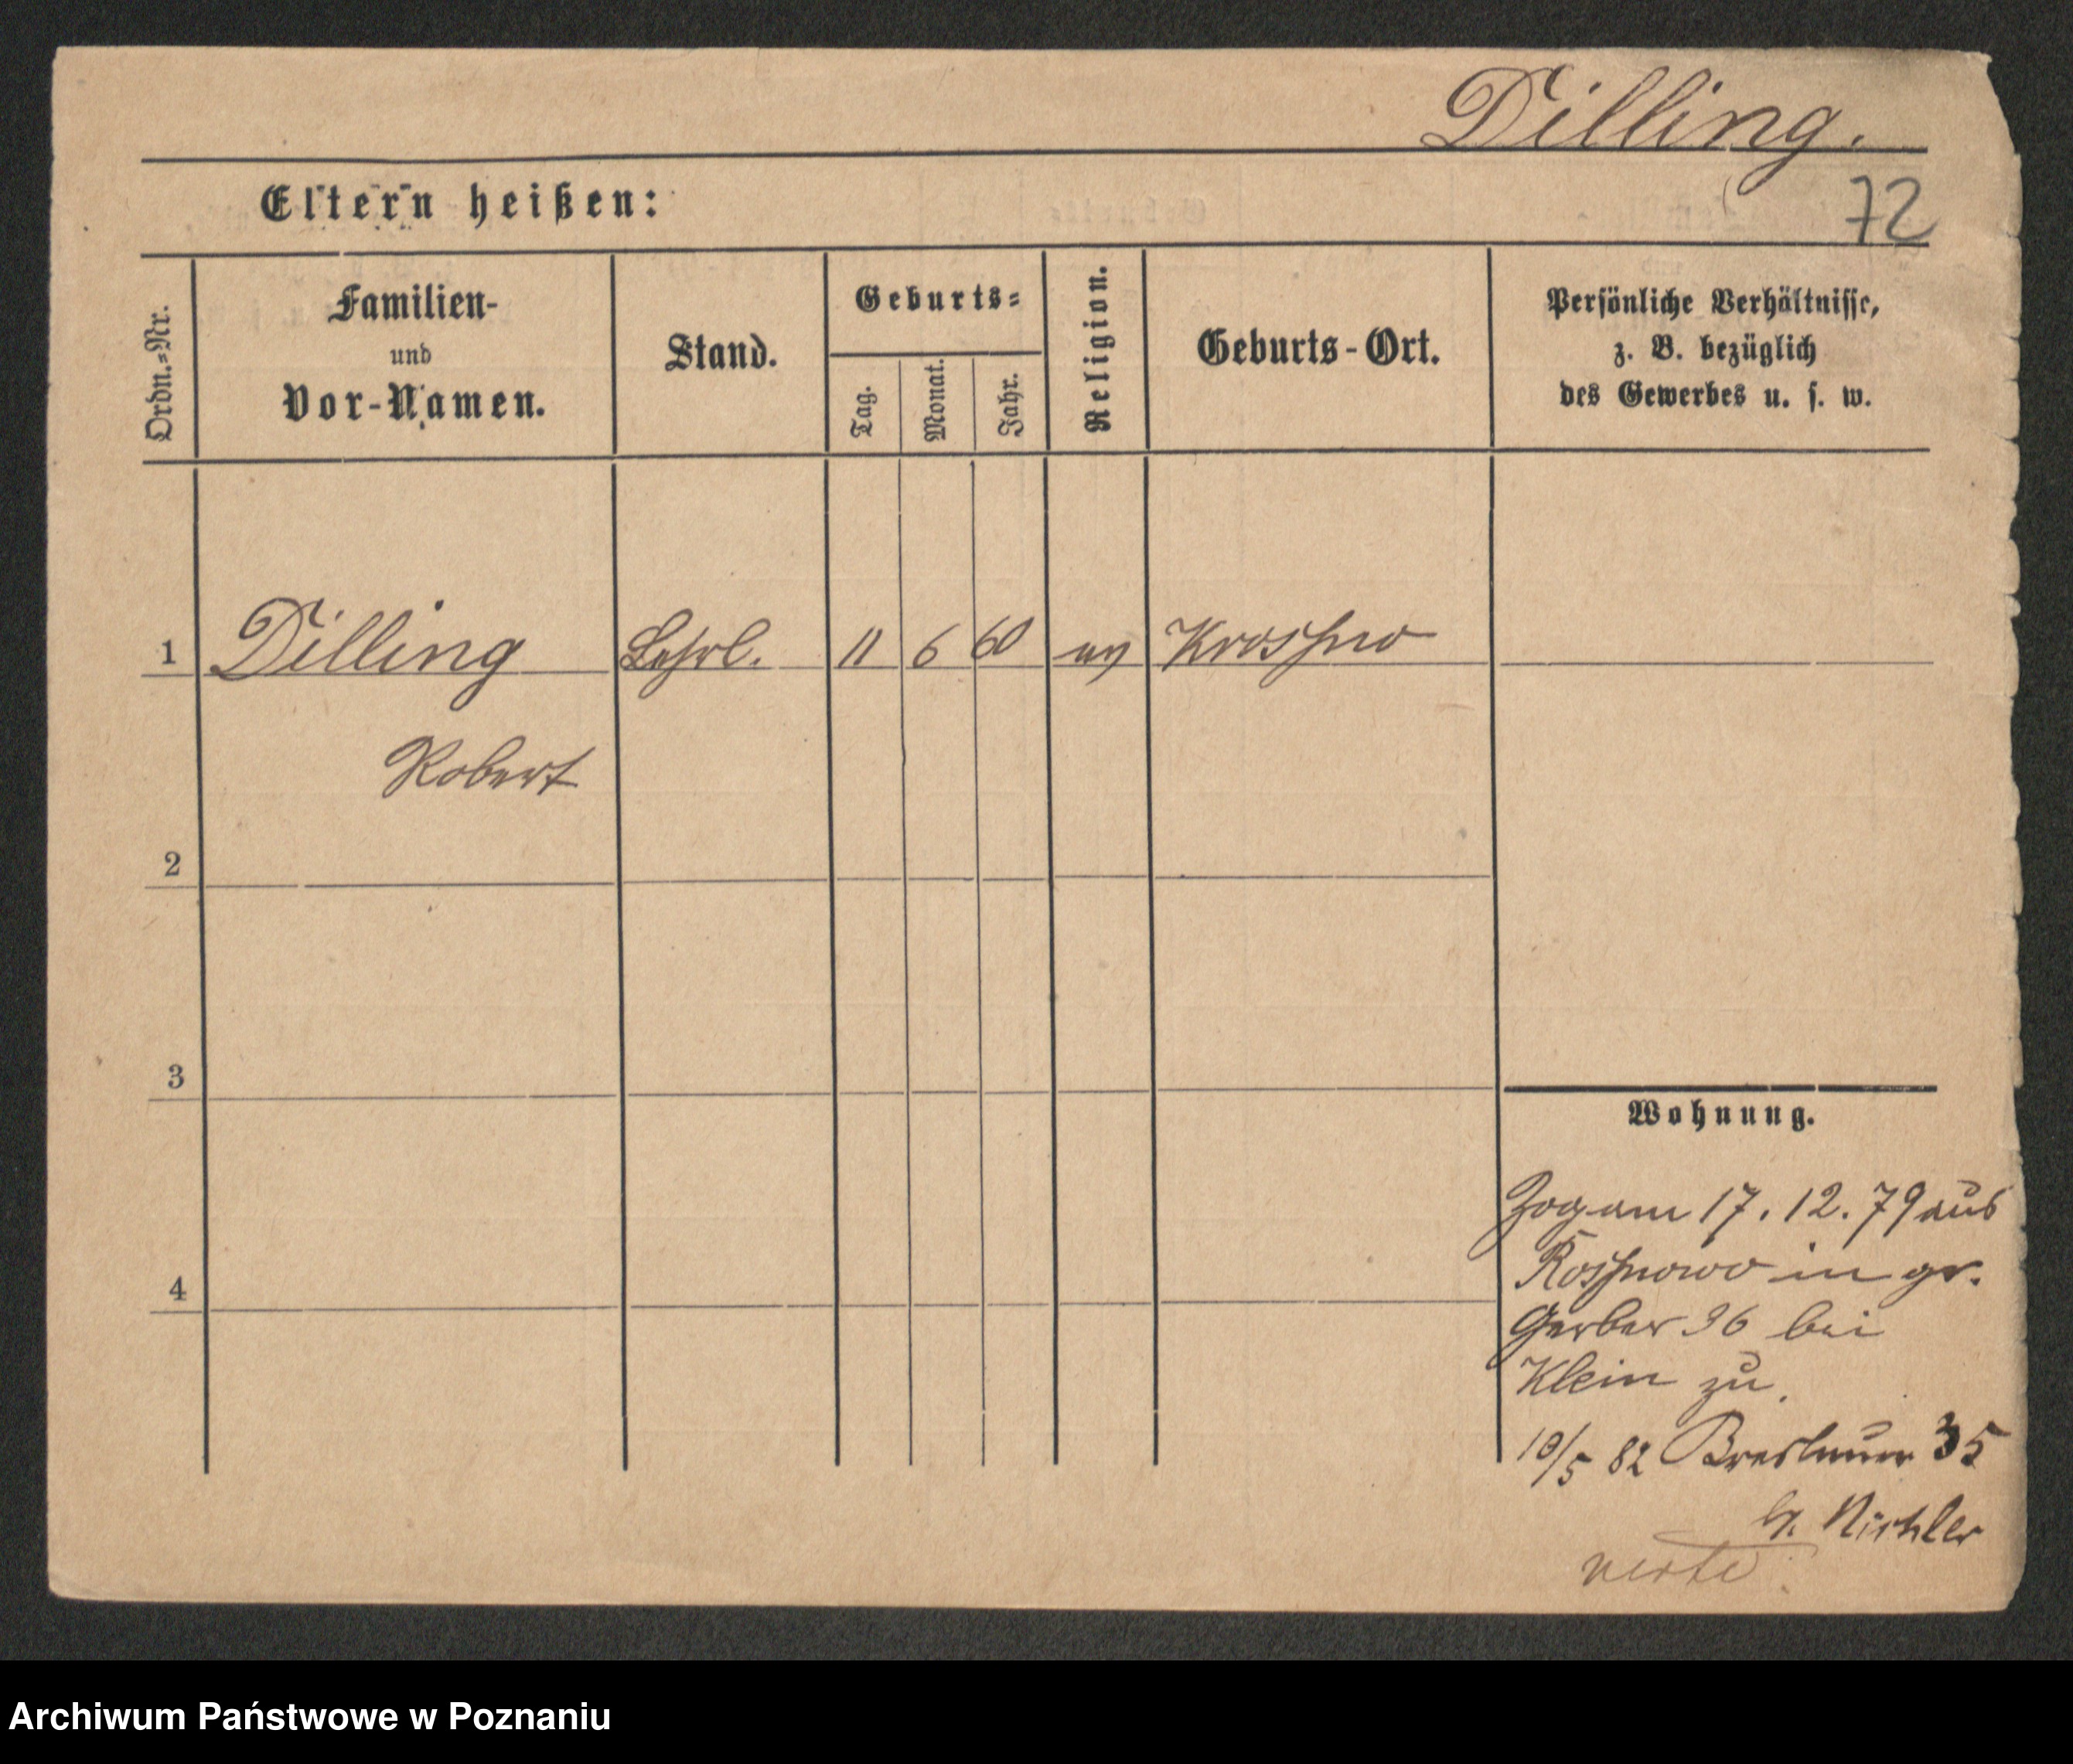 Dilling.
72
Eltern heißen:
Ordn.=Nr.
Familien-
und
Vor-Namen.
Stand.
Geburts=
Tag.
Monat.
Jahr.
Religion.
Geburts-Ort.
Persönliche Verhältnisse,
z. B. bezüglich
des Gewerbes u. s. w.
1 Dilling Lehrl. 11 6 60 ev Krossno
Robert
2
3
4
Wohnung.
Zog am 17. 12. 79 aus
Rossnowo in gr.
Gerber 36 bei
Klein zu.
10/5 82 Breslauer 35
b.
verte.
Archiwum Państwowe w Poznaniu